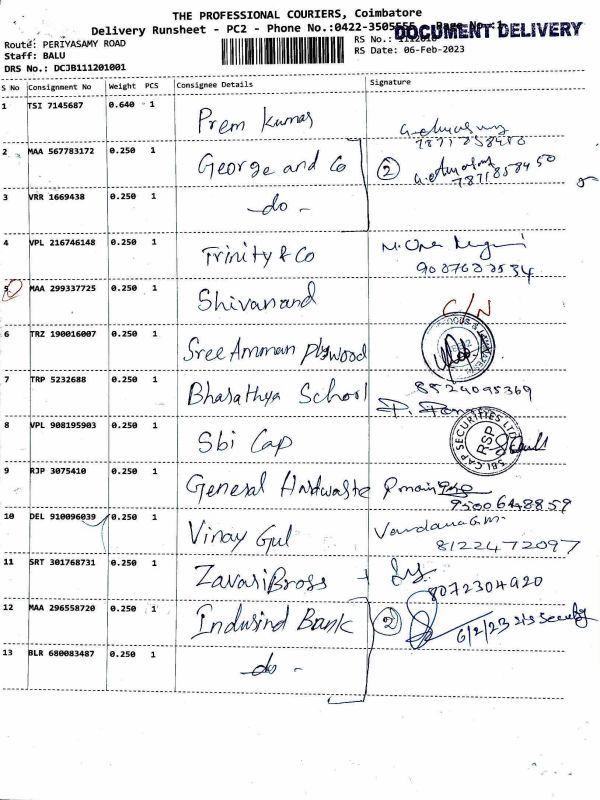 THE PROFESSIONAL COURIERS, Coimbatore
Delivery Runsheet - PC2 - Phone No.:0422-3505555 Page No.:1
DOCUMENT DELIVERY
Route: PERIYASAMY ROAD
RS No.:
Staff: BALU
RS Date: 06-Feb-2023
DRS No.: DCJB111201001
S No Consignment No Weight PCS Consignee Details Signature
1 TSI 7145687 0.640 1 Prem Kumar
2 MAA 567783172 0.250 1 George and Co 2 7871858450
3 VRR 1669438 0.250 1 -do-
4 VPL 216746148 0.250 1 Trinity & Co
5 MAA 299337725 0.250 1 Shivanand C/N
6 TRZ 190016007 0.250 1 Sree Amman Plywood
7 TRP 5232688 0.250 1 Bharathya School 8524095369
8 VPL 908195903 0.250 1 Sbi Cap
SBI CAP SECURITIES LTD
RSP
9 RJP 3075410 0.250 1 General Hardware 9500648859
10 DEL 910096039 0.250 1 Vinay Gul Vandana G.M.
8122472097
11 SRT 301768731 0.250 1 Zavari Bross
8072304920
12 MAA 296558720 0.250 1 Indusind Bank 2 6/2/23
13 BLR 680083487 0.250 1 -do-